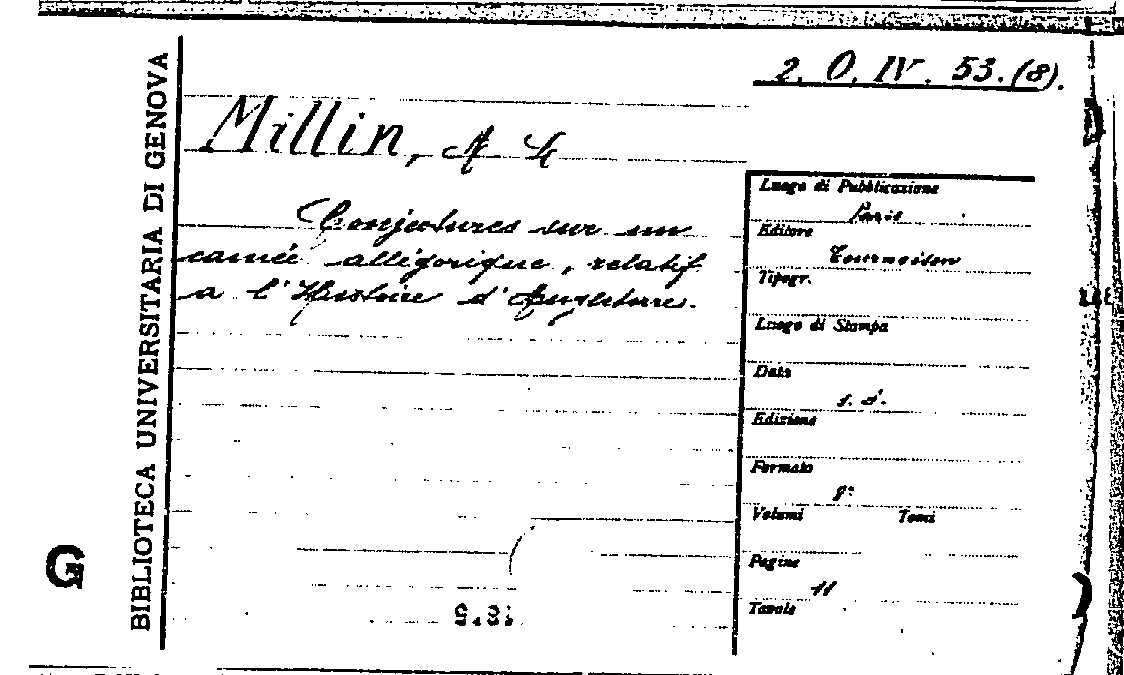 2. O. IV. 53. (8).
BIBLIOTECA UNIVERSITARIA DI GENOVA
Millin, A L
Conjectures sur un
camée allégorique, relatif
a l'Histoire d'Angleterre.
Luogo di Pubblicazione
Paris
Editore
Tourneisen
Tipogr.
Luogo di Stampa
Data
s. d.
Edizione
Formato
8°
Volumi Tomi
Pagine
11
Tavole
G